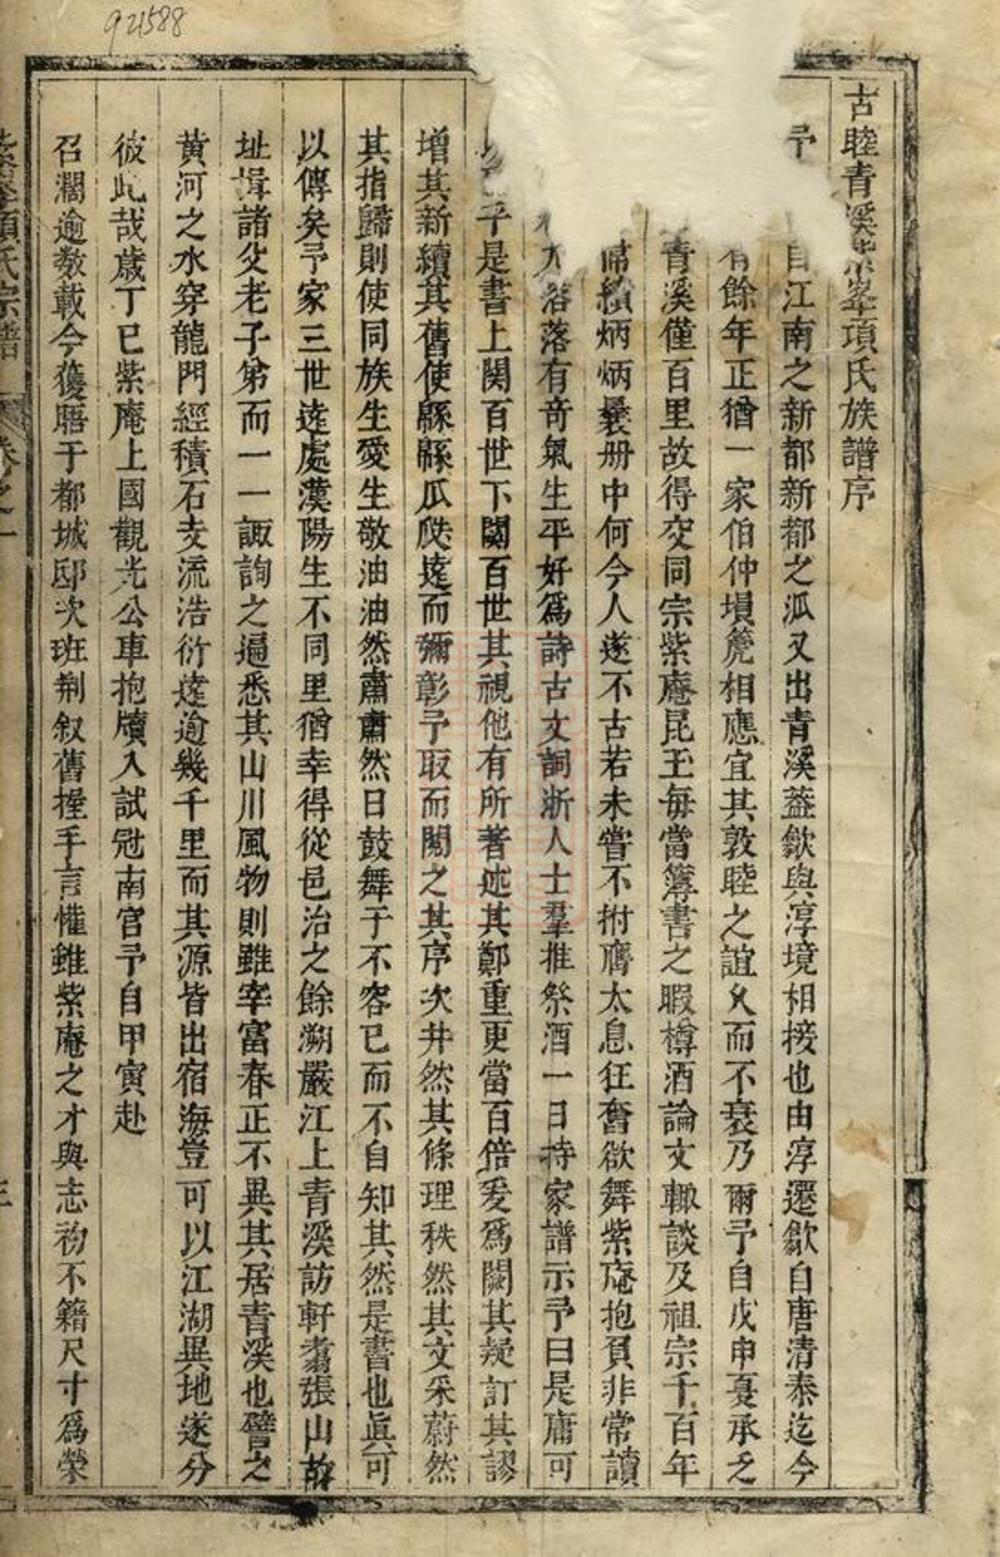 921588
古睦青溪紫峯項氏族譜序
予自江南之新都新都之派又出青溪葢歙與淳境相接也由淳遷歙自唐清泰迄今
有餘年正猶一家伯仲塤箎相應宜其敦睦之誼乆而不衰乃爾予自戊申夏承乏
青溪僅百里故得交同宗紫庵昆玉每當簿書之暇樽酒論文輙談及祖宗千百年
績炳炳曩册中何今人遂不古若未嘗不拊膺太息狂奮欲舞紫庵抱負非常讀
落落有竒氣生平好爲詩古文詞浙人士羣推祭酒一日持家譜示予曰是庸可
乎是書上関百世下闗百世其視他有所著述其鄭重更當百倍爰爲闕其疑訂其謬
增其新續其舊使緜緜瓜瓞逺而彌彰予取而閱之其序次井然其條理秩然其文采蔚然
其指歸則使同族生愛生敬油油然肅肅然日鼓舞于不容已而不自知其然是書也眞可
以傳矣予家三世逺處漢陽生不同里猶幸得從邑治之餘溯嚴江上青溪訪軒翥張山故
址揖諸父老子弟而一一諏詢之遍悉其山川風物則雖宰富春正不異其居青溪也譬之
黄河之水穿龍門經積石支流浩衍逺逾幾千里而其源皆出宿海豈可以江湖異地遂分
彼此哉歲丁巳紫庵上國觀光公車抱牘入試冠南宫予自甲寅赴
召濶逾数載今獲晤于都城邸次班荆叙舊握手言懽雖紫庵之才與志礿不籍尺寸爲榮
項氏宗譜 卷之一